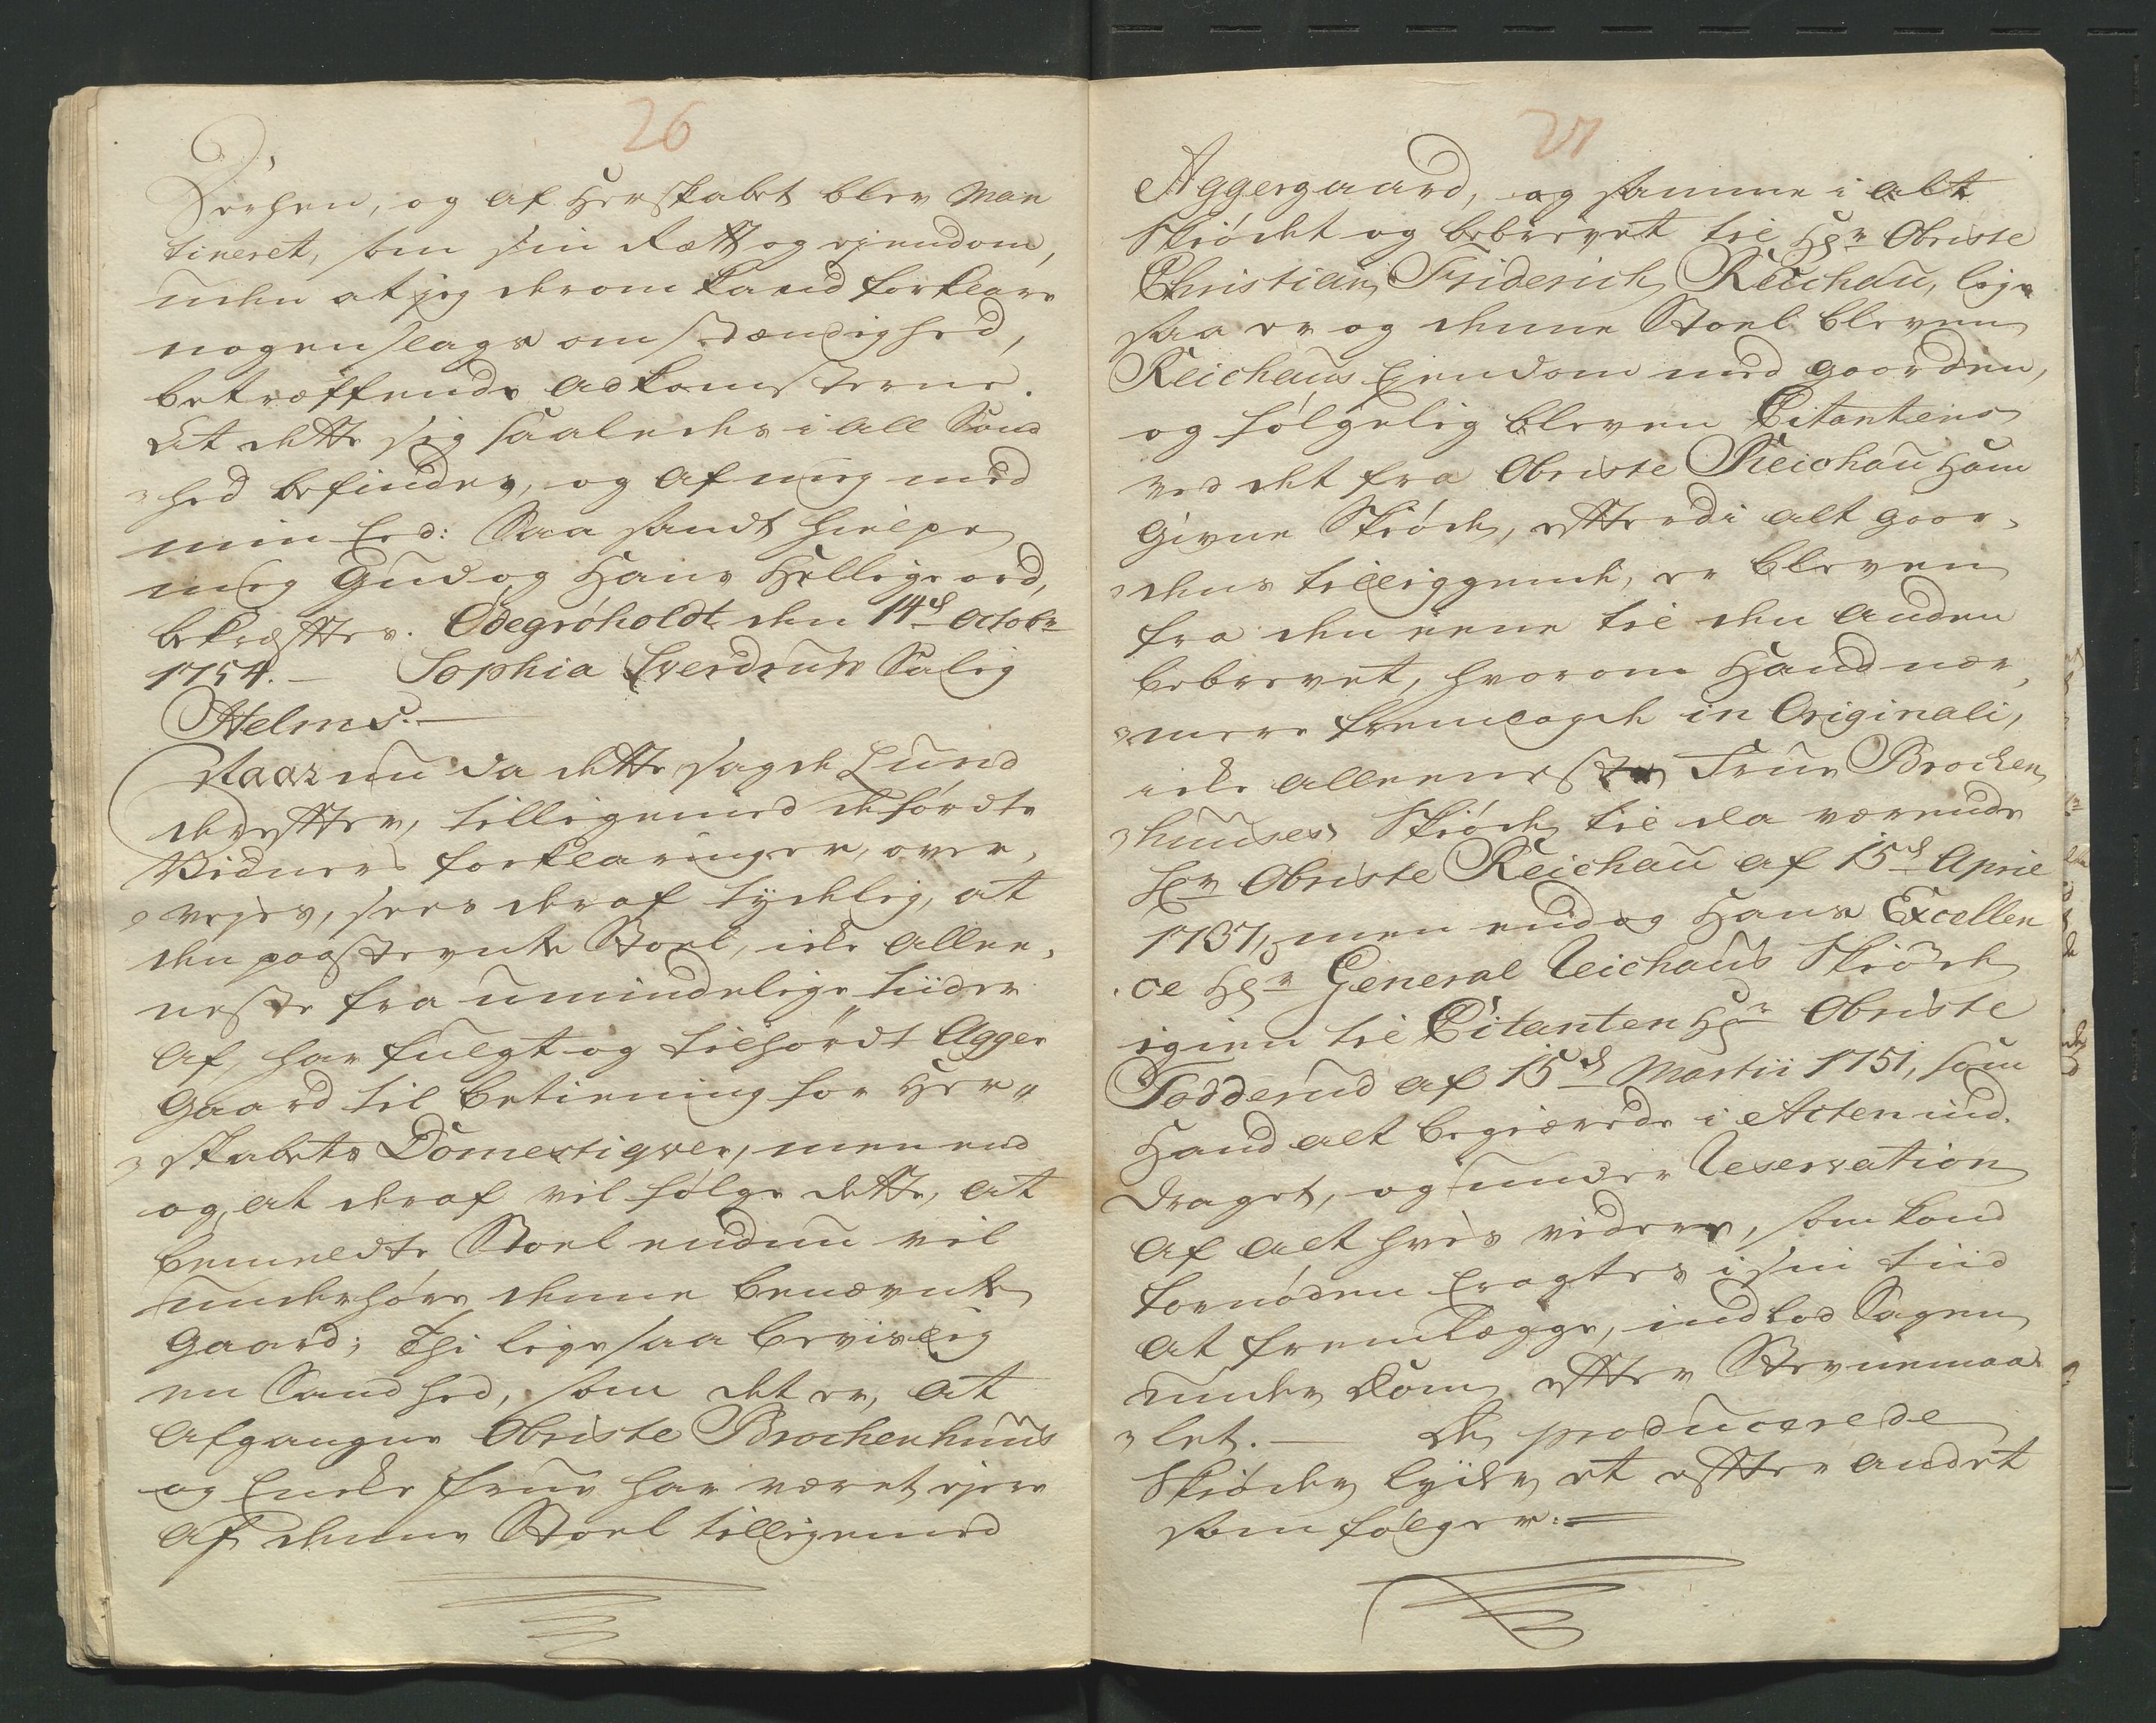 26
Dørhen, og af Herskabet blev Man
tineret, som sin Rætt og ejendom,
uden at jeg derom kand forklare
nogen slags omstændighed,
betræffende adkomsterne.
At dette sig saaledes i all Sand
hed befinder, og af mig med
min Eed: Saa sandt hielpe
mig Gud og Hans Hellige ord,
bekræfftes. Ødegrøholdt den 14d Octobr
1754. — Sophia Sverdrup Salig
Helms. —
Naar nu da dette sagde Lund
derefter, tilligemed de førdte
Vidners forklaringer, over,
vejes, sees deraf tydelig, at
den paastevnte Stoel, icke allee,
neste fra umindelige tiider
af, har fulgt og tilhørdt Agger
Gaard til betiening for Her,,
skabets Domestiqver, men end
og, at deraf vil følge dette, at
bemeldte Stoel endnu vil
underhøre denne benævnte
Gaard; Thi lige saa bevislig
en Sandhed, som det er, at
Afgangne Obriste Brochenhuus
og Encke Frue har været ejere
af denne Stoel tilligemed
27
Aggergaard, og samme i alt
Skiødet og bebrevet til Hr Obriste
Christian Friderich Reichau, lige
saa er og denne Stoel bleven
Reichaus Ejendom med gaarden,
og følgelig bleven Citantens
ved det fra Obriste Reichau ham
givne Skiøde, efterdi alt gaar,
dens tilliggende, er bleven
fra den eene til den anden
bebrevet, hvorom Hand nær,
mere fremlagde in Originali,
icke alleeneste Frue Brochen
huuses Skiøde til da værende
Hr Obriste Reichau af 15d April
1737, men endog Hans Excellen
ce Hr General Reichaus Skiøde
igien til Citanten Hr Obriste
Todderud af 15d Martii 1751, som
Hand alt begiærede i Acten ind,
draget, og under Reservation
af alt hvis videre, som kand
fornøden eragtes i sin tiid
at fremlægge, indlod Sagen
under Dom efter Stevnemaa
let. — De producerede
Skiøder lyder et efter andet
som følger: —